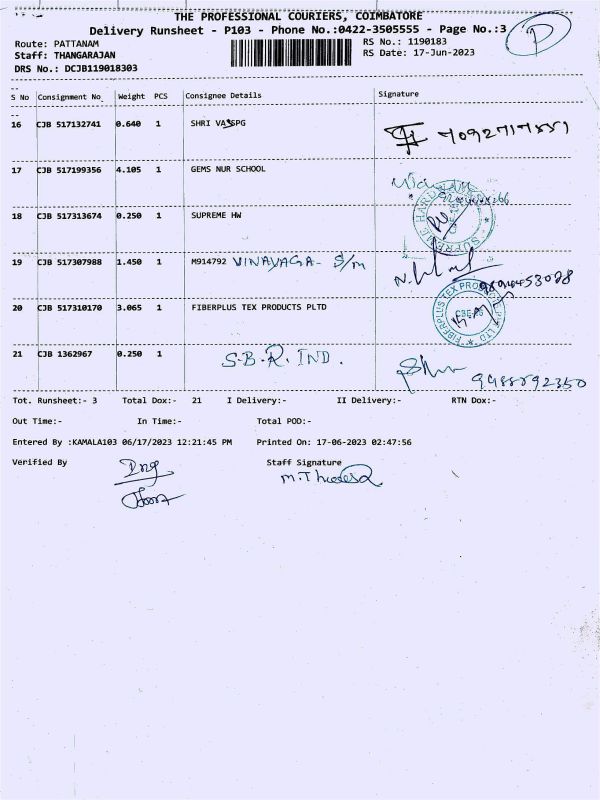 THE PROFESSIONAL COURIERS, COIMBATORE
Delivery Runsheet - P103 - Phone No.:0422-3505555 - Page No.:3
Route: PATTANAM
RS No.: 1190183
Staff: THANGARAJAN
RS Date: 17-Jun-2023
DRS No.: DCJB119018303
S No Consignment No Weight PCS Consignee Details Signature
16 CJB 517132741 0.640 1 SHRI VASSPG 7092717551
17 CJB 517199356 4.105 1 GEMS NUR SCHOOL
18 CJB 517313674 0.250 1 SUPREME HW
SUPREME HARDWARE
19 CJB 517307988 1.450 1 M914792 VINAYAGA - S/m
20 CJB 517310170 3.065 1 FIBERPLUS TEX PRODUCTS PLTD
FIBERPLUS TEX PRODUCTS PVT LTD
21 CJB 1362967 0.250 1 S.B.R. IND.
Tot. Runsheet:- 3 Total Dox:- 21 I Delivery:- II Delivery:- RTN Dox:-
Out Time:- In Time:- Total POD:-
Entered By :KAMALA103 06/17/2023 12:21:45 PM Printed On: 17-06-2023 02:47:56
Verified By Staff Signature